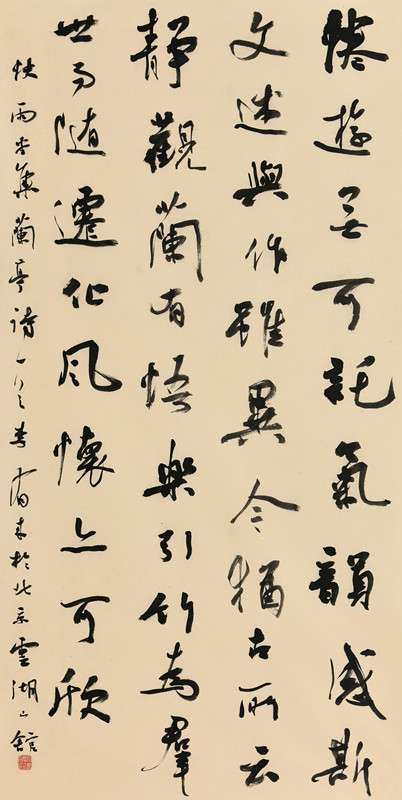 遊無可託氣韻感斯
文述與作雖異今猶古所云
靜觀蘭有悟樂引竹為羣
世隨遷化風懷亦可欣
快雨堂集蘭亭詩一首李来於北京雲湖山館